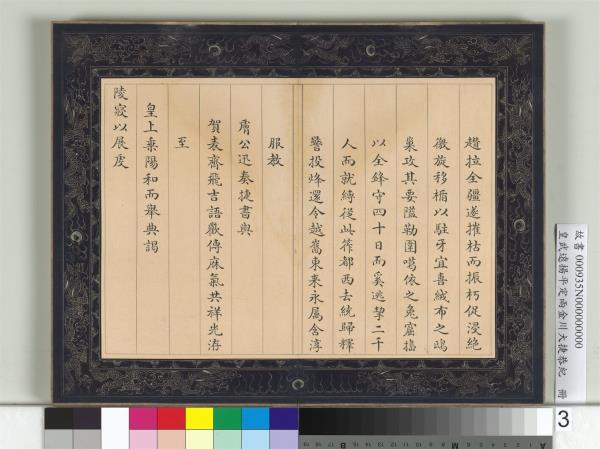 趲拉全疆遂摧枯而振朽促浸絶
徼旋移楯以駐牙宜喜絨布之鴟
巢攻其要隘勒圍噶依之兔窟擣
以全鋒守四十日而奚逃挈二千
人而就縛從此莋都西去統歸釋
警投烽還令越巂東来永属含淳
服教
膚公迅奏捷書與
賀表齊飛吉語歡傳庥氣共祥光洊
至
皇上乗陽和而舉典謁
陵寢以展虔
故書 000935N000000000
皇武遠揚平定兩金川大捷恭紀 冊
3